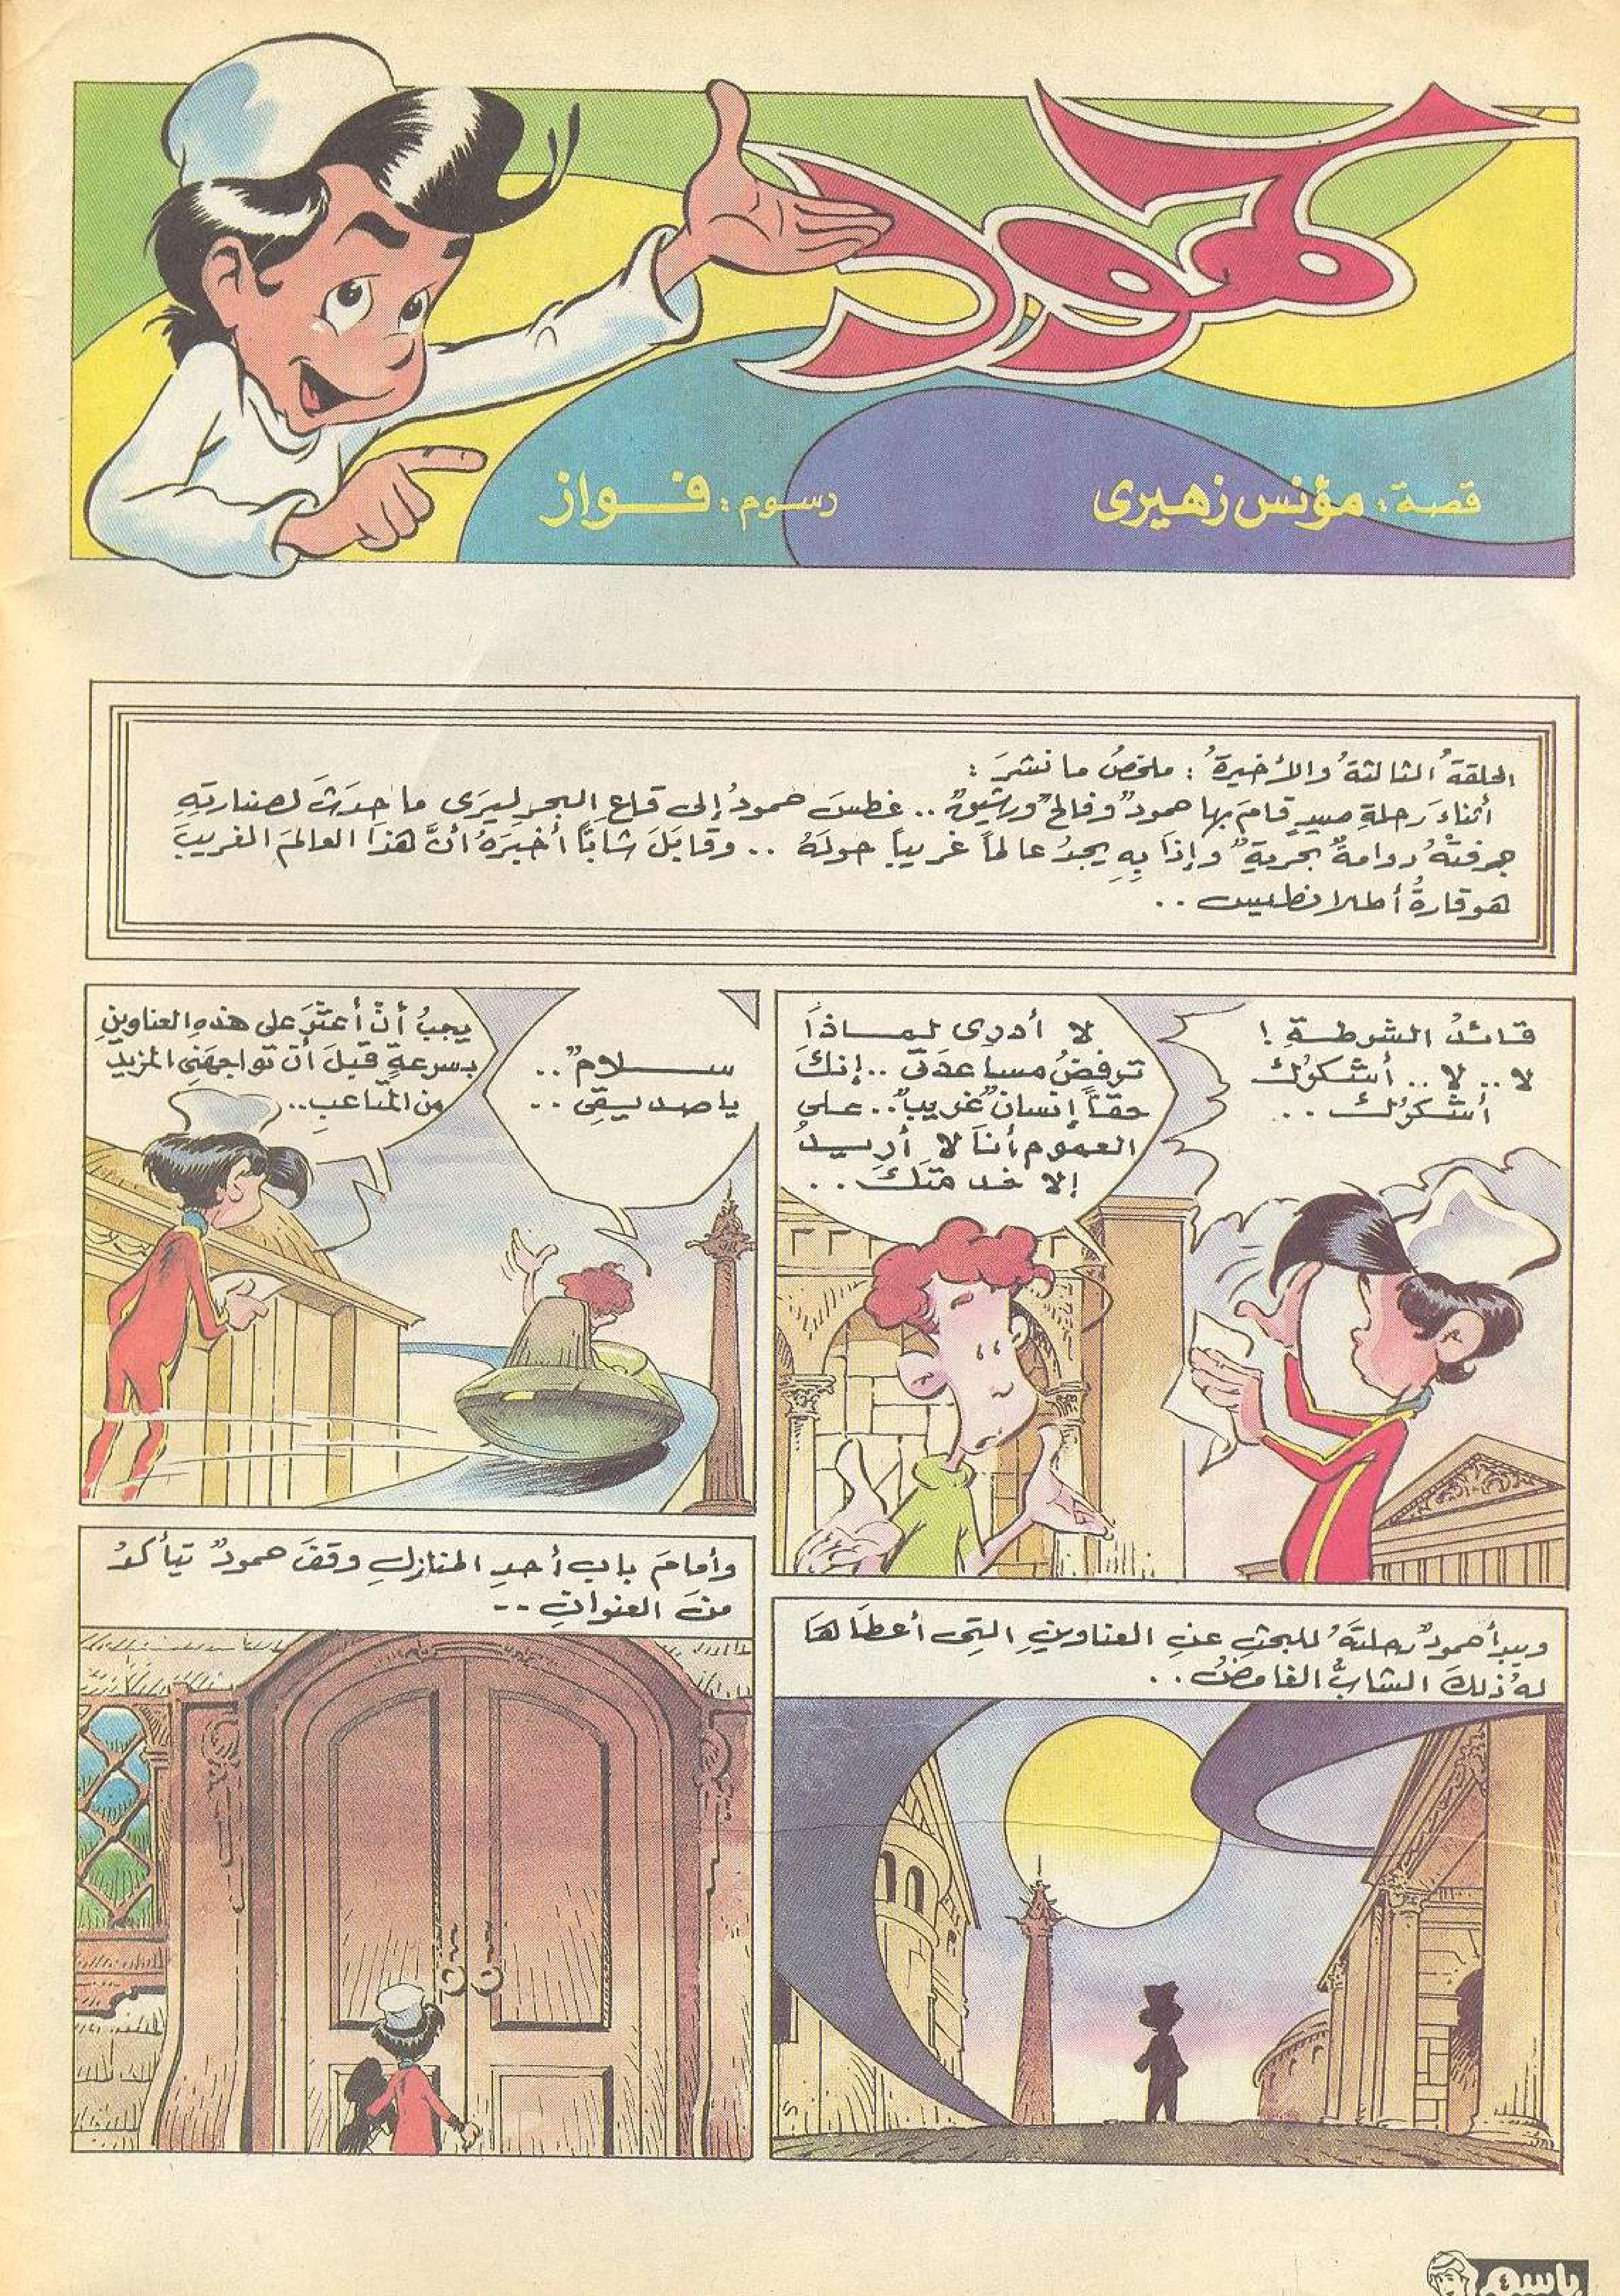 حمود
قصة: مؤنس زهيرى
رسوم: فـواز
الحلقةُ الثالثةُ والأخيرةُ: ملخصُ ما نشرَ:
أثناءَ رحلةِ صيدٍ قامَ بها حمودٌ وفالحٌ ورشيقٌ.. غطسَ حمودٌ إلى قاعِ البحرِ ليرَى ما حدثَ لصنارتِهِ
جرفتْهُ دوامةٌ بحريةٌ وإذَا بِهِ يجدُ عالماً غريباً حولهُ .. وقابَلَ شابّاً أخبرَهُ أنَّ هذَا العالمَ الغريبَ
هو قارةُ أطلانطيس ..
قائدُ الشرطةِ !
لا .. لا .. أشكرُك
أشكرُك ...
لا أدرى لماذَا
ترفضُ مساعدتى .. إنكَ
حقاً إنسانٌ غريبٌ.. على
العموم أنَا لا أريدُ
إلا خدمتَكَ ..
ســلامٌ ..
يا صديقِى ..
يجبُ أنْ أعثرَ على هذهِ العناوينِ
بسرعةٍ قبلَ أن تواجهَنِى المزيد
من المتاعبِ..
ويبدأ حمودٌ رحلتَهُ للبحثِ عنِ العناوينِ التِى أعطاهَا
لهُ ذلكَ الشابُّ الغامضُ ..
وأمامَ بابِ أحدِ المنازلِ وقفَ حمودٌ يتأكدُ
منَ العنوانِ --
باسم
٤